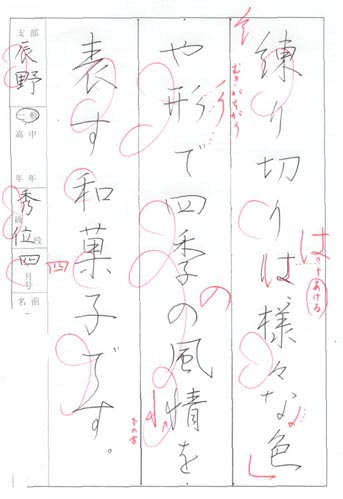 練り切りは様々な色
や形で四季の風情を
表す和菓子です。
支部
辰野
一般
高中
年年
秀級
位段
四月号
名前
むきがちがう
は
あける
の
四
下の方